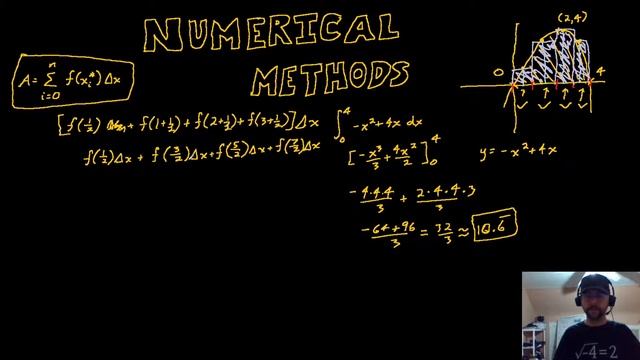 NUMERICAL
METHODS
A = Σ_{i=0}^{n} f(x_i^*) Δx
[f(1/2) + f(1+1/2) + f(2+1/2) + f(3+1/2)] Δx
f(1/2)Δx + f(3/2)Δx + f(5/2)Δx + f(7/2)Δx
∫_0^4 -x²+4x dx
[-x³/3 + 4x²/2]_0^4
-4·4·4/3 + 2·4·4·3/3
(-64+96)/3 = 32/3 ≈ 10.6̅
(2,4)
0 4
y = -x²+4x
√-4 = 2